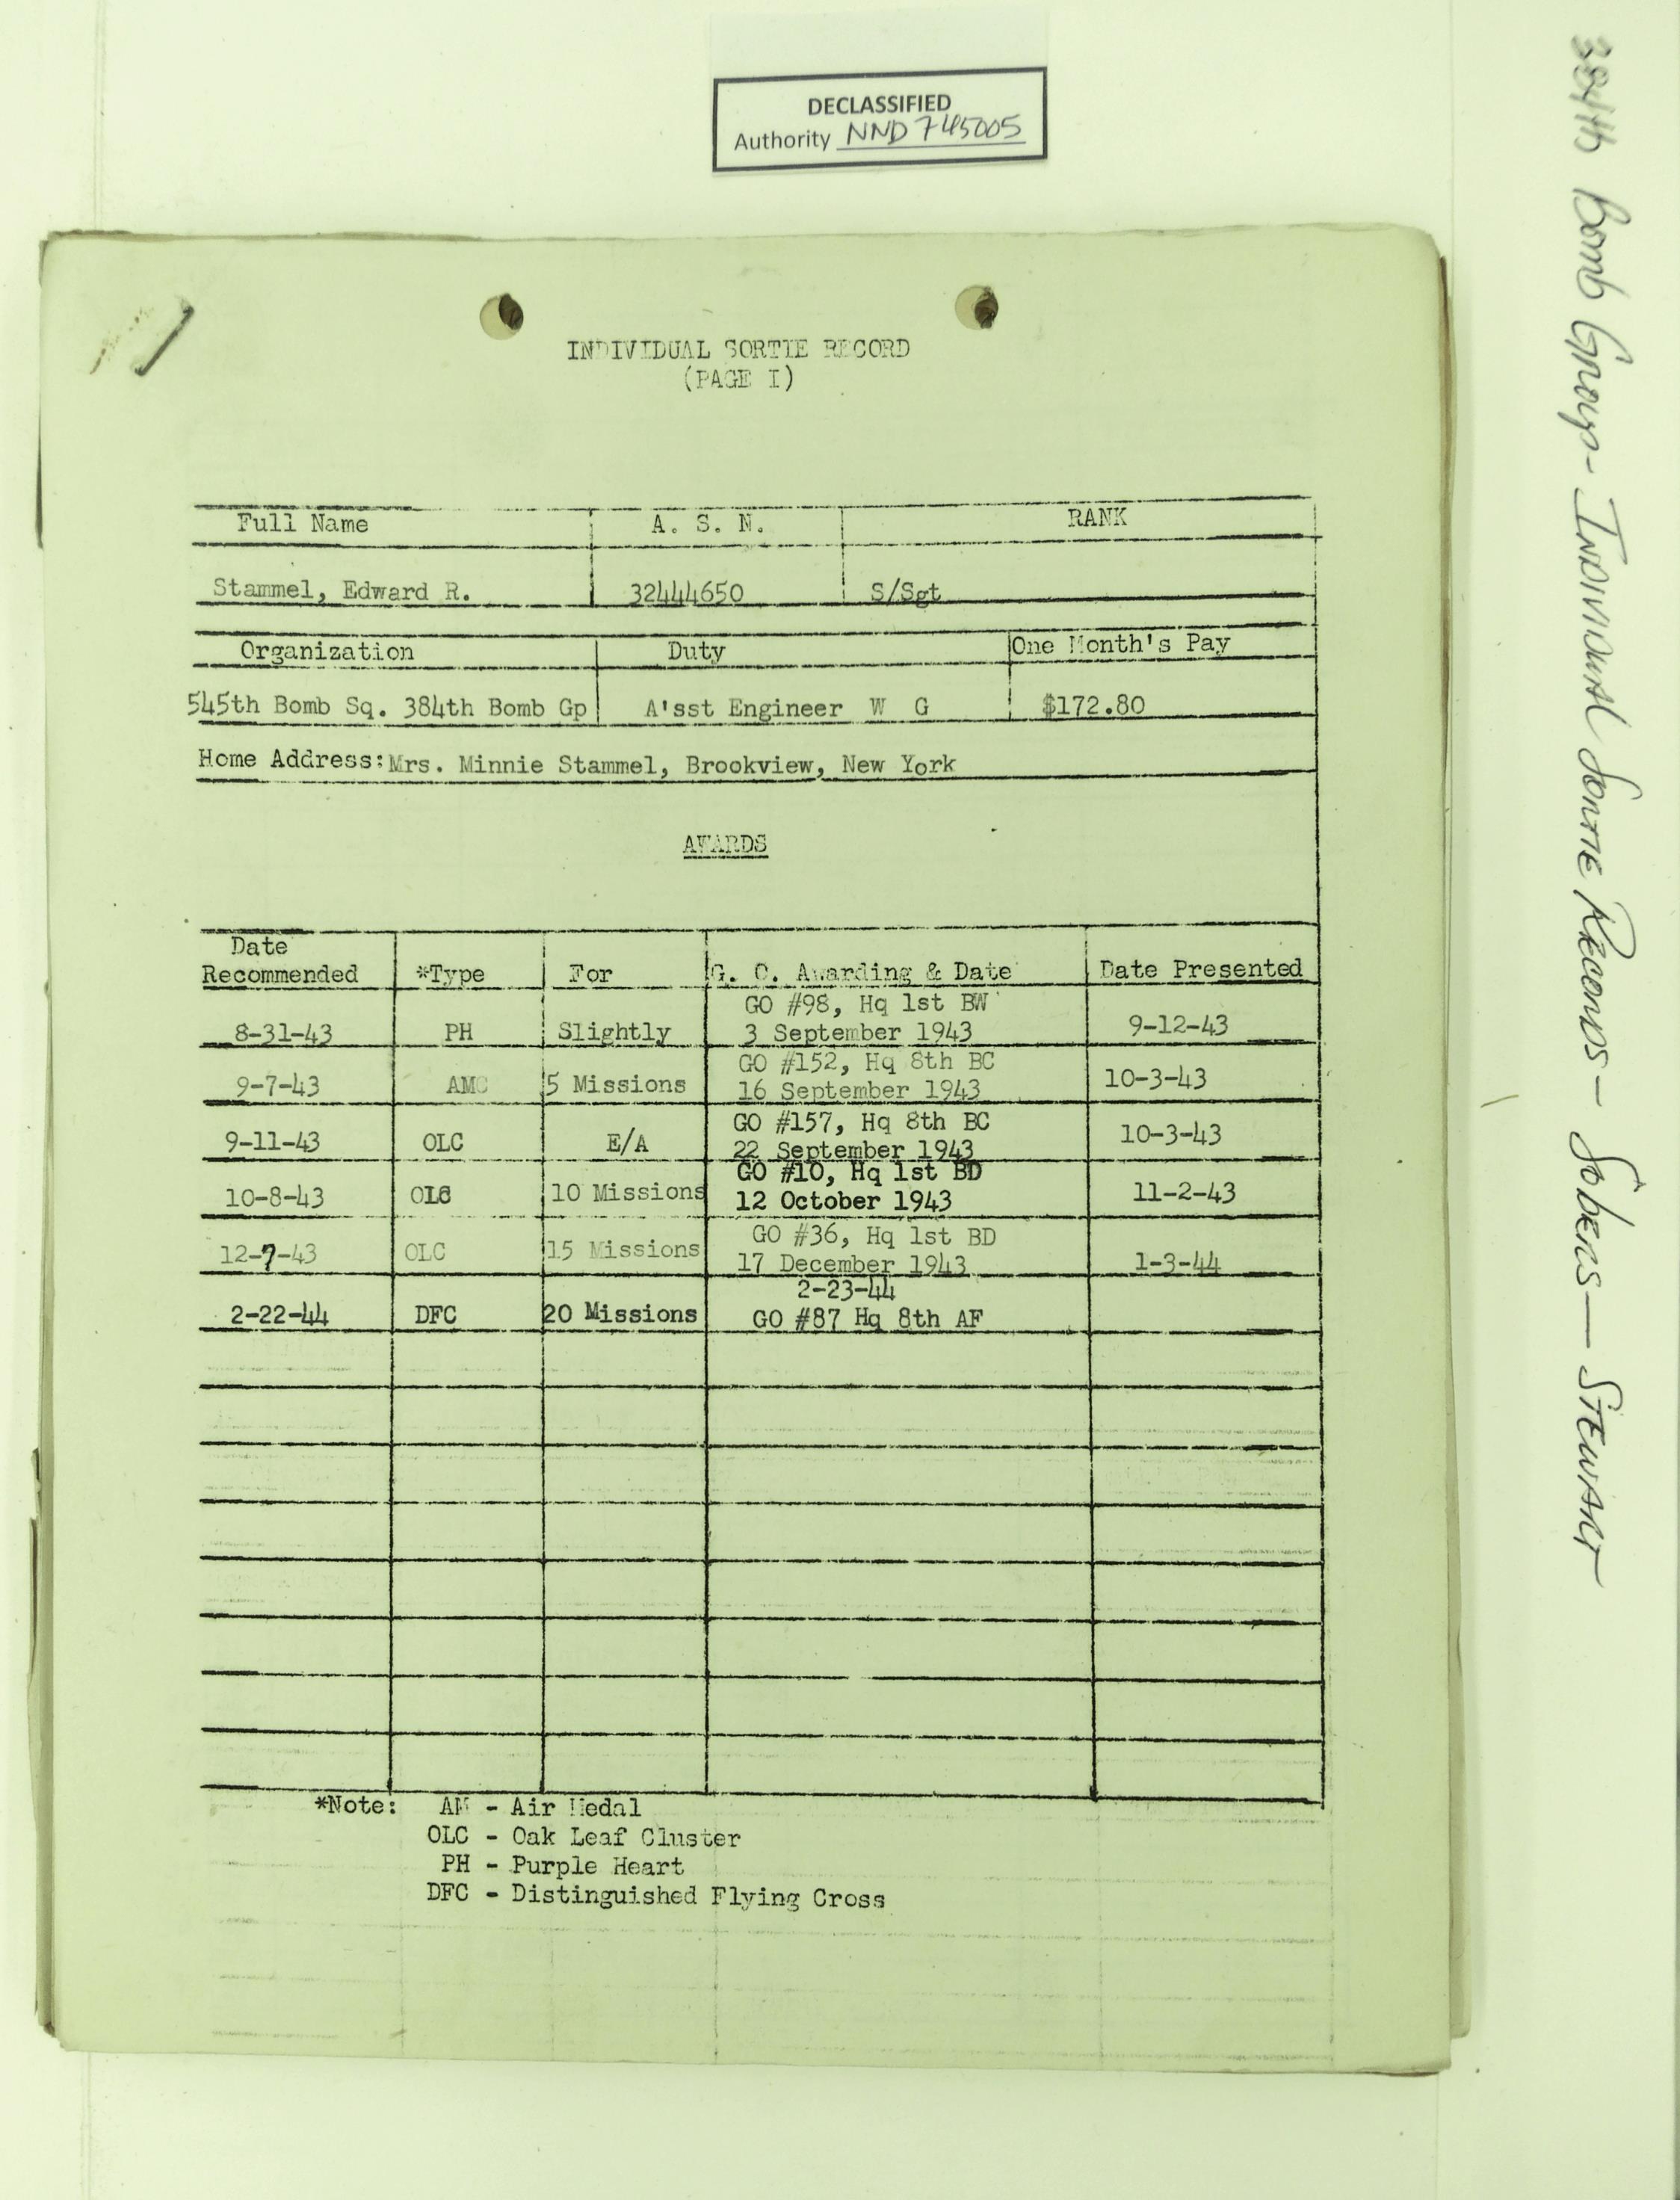 DECLASSIFIED
Authority NND 745005
384th Bomb Group - Individual Sortie Records - Sobers — Stewart
INDIVIDUAL SORTIE RECORD
(PAGE I)
Full Name A. S. N. RANK
Stammel, Edward R. 32444650 S/Sgt
Organization Duty One Month's Pay
545th Bomb Sq. 384th Bomb Gp A'sst Engineer W G $172.80
Home Address: Mrs. Minnie Stammel, Brookview, New York
AWARDS
Date
Recommended *Type For G. O. Awarding & Date Date Presented
GO #98, Hq 1st BW
8-31-43 PH Slightly 3 September 1943 9-12-43
GO #152, Hq 8th BC
9-7-43 AM 5 Missions 16 September 1943 10-3-43
GO #157, Hq 8th BC
9-11-43 OLC E/A 22 September 1943 10-3-43
GO #10, Hq 1st BD
10-8-43 OLC 10 Missions 12 October 1943 11-2-43
GO #36, Hq 1st BD
12-7-43 OLC 15 Missions 17 December 1943 1-3-44
2-23-44
2-22-44 DFC 20 Missions GO #87 Hq 8th AF
*Note: AM - Air Medal
OLC - Oak Leaf Cluster
PH - Purple Heart
DFC - Distinguished Flying Cross